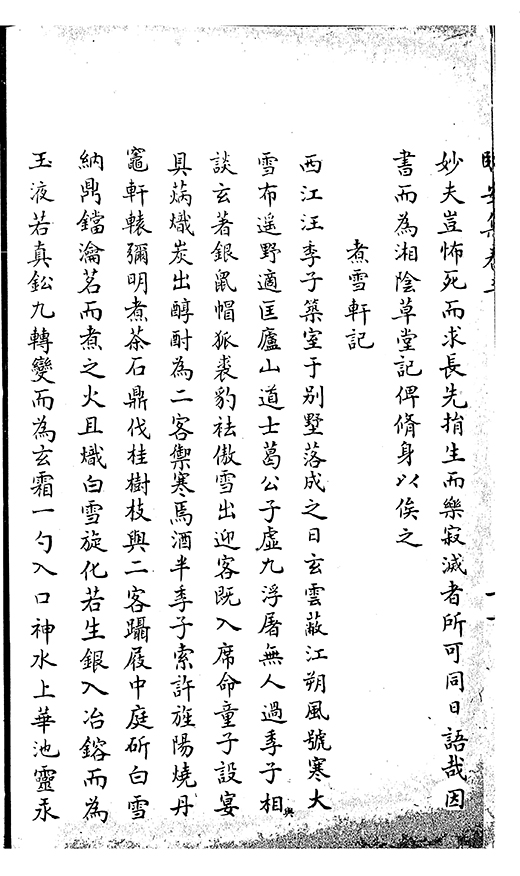 妙夫豈怖死而求長先揹生而樂寂滅者所可同日語哉因
書而為湘陰草堂記俾脩身以俟之
煮雪軒記
西江汪季子築室于别墅落成之日玄雲蔽江朔風號寒大
雪布遥野適匡廬山道士葛公子虛九浮屠無人過季子相與
談玄著銀鼠帽狐裘豹袪傲雪出迎客既入席命童子設宴
具焫熾炭出醇酎為二客禦寒焉酒半季子索許旌陽燒丹
竈軒轅彌明煮茶石鼎伐桂樹枝與二客躡屐中庭斫白雪
納鼎鐺瀹茗而煮之火且熾白雪旋化若生銀入冶鎔而為
玉液若真鈆九轉變而為玄霜一勺入口神水上華池靈汞